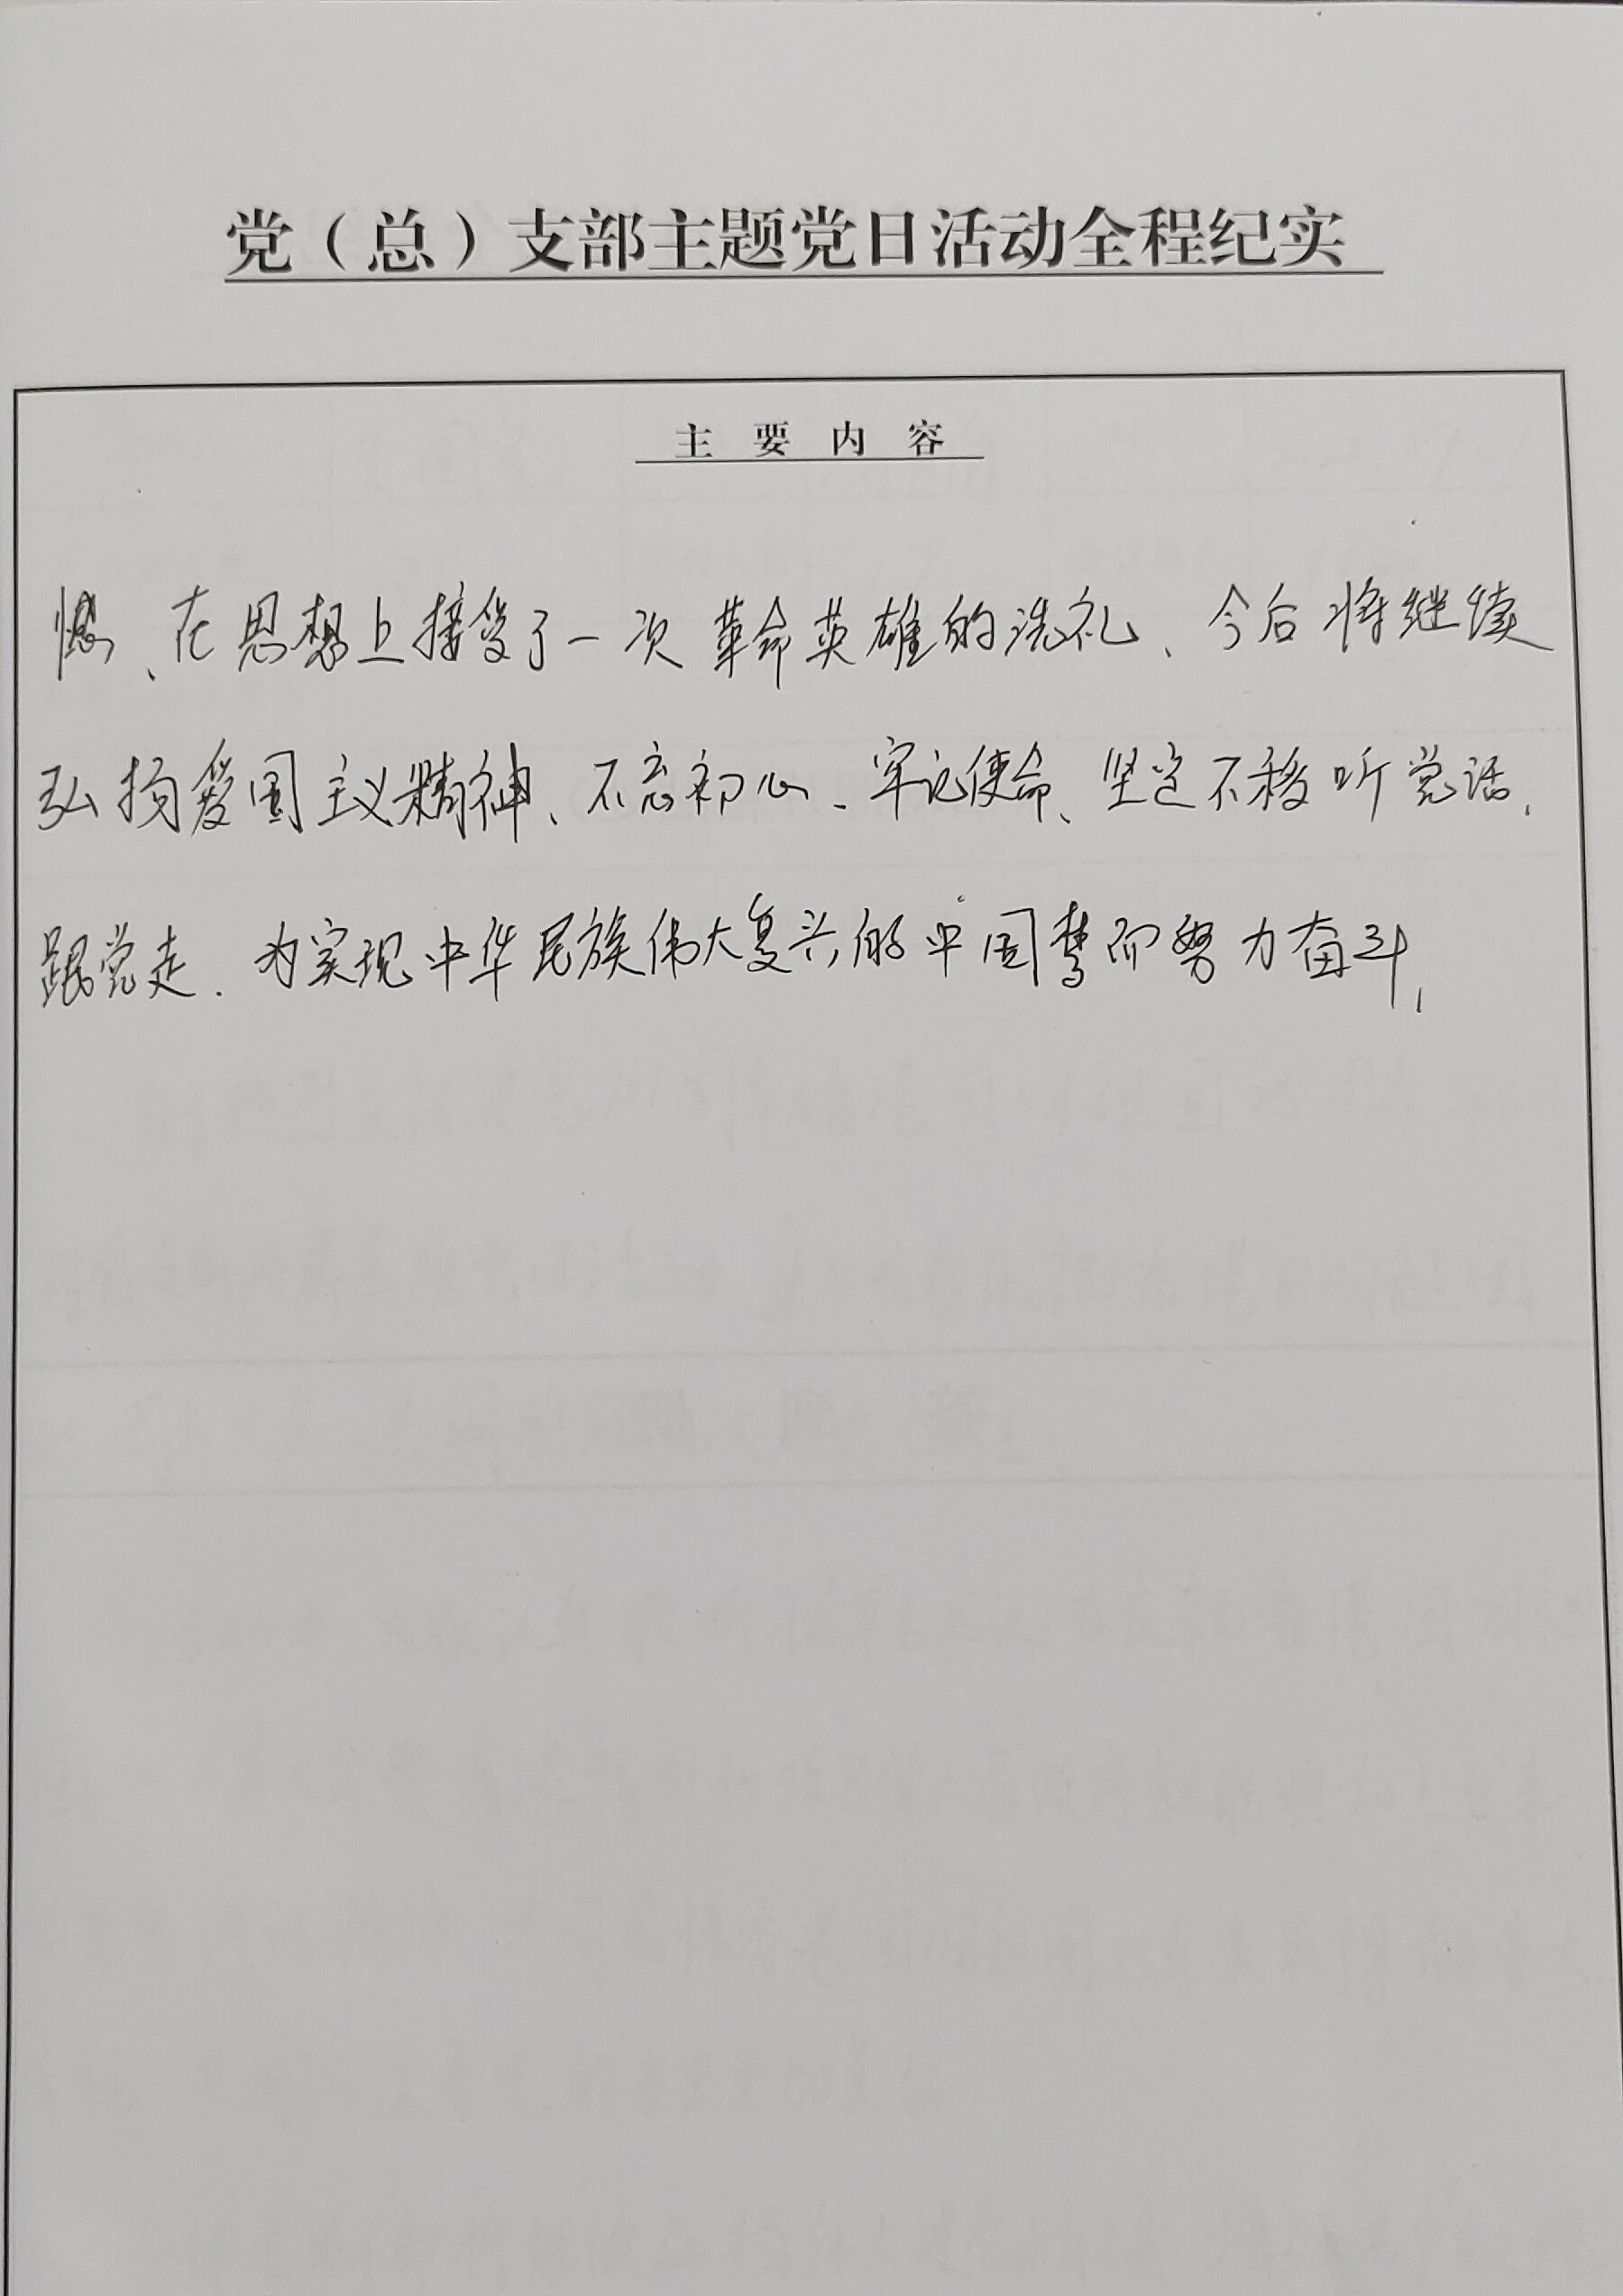 党（总）支部主题党日活动全程纪实
主要内容
憾、在思想上接受了一次革命英雄的洗礼、今后将继续
弘扬爱国主义精神、不忘初心、牢记使命、坚定不移听党话、
跟党走、为实现中华民族伟大复兴的中国梦而努力奋斗，